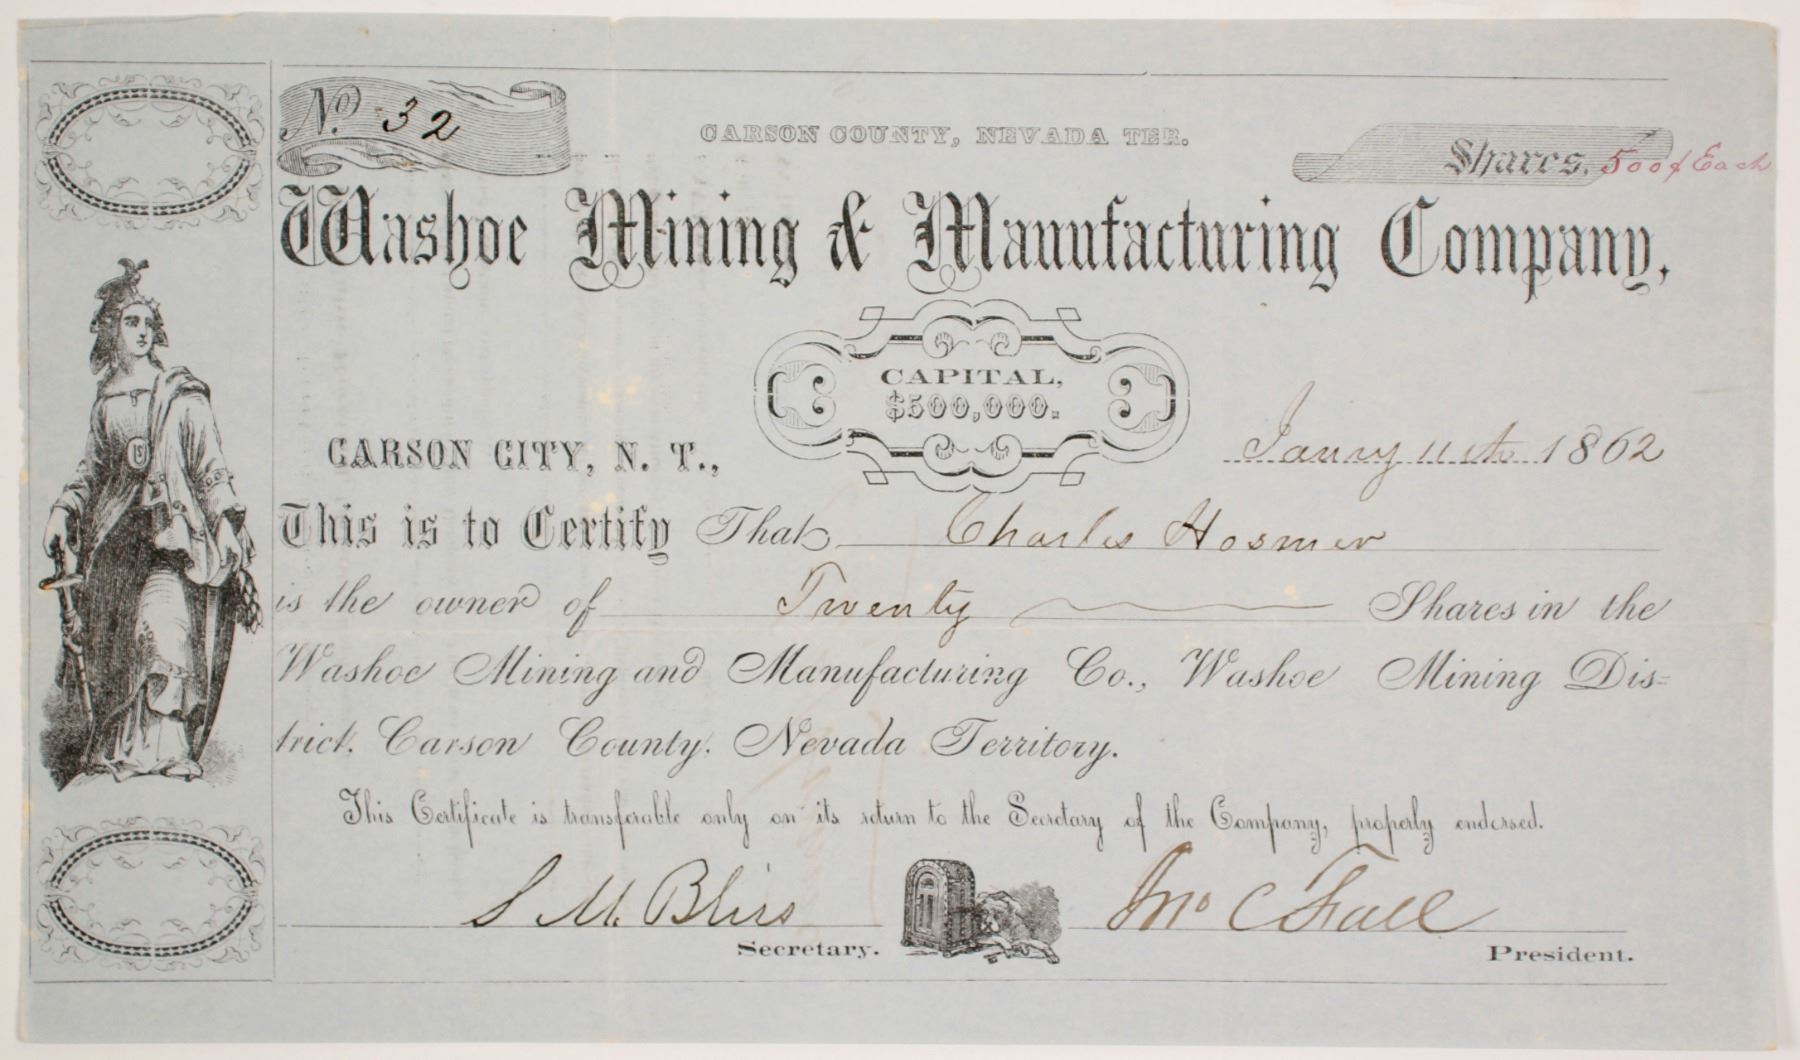 No. 32
CARSON COUNTY, NEVADA TER.
Shares, 500$ Each
Washoe Mining & Manufacturing Company,
CAPITAL,
$500,000.
CARSON CITY, N. T., Janry 11th 1862
This is to Certify That Charles Hosmer
is the owner of Twenty Shares in the
Washoe Mining and Manufacturing Co., Washoe Mining Dis=
trict, Carson County, Nevada Territory.
This Certificate is transferable only on its return to the Secretary of the Company, properly endorsed.
S M. Bliss
Secretary.
Jno C Fall
President.